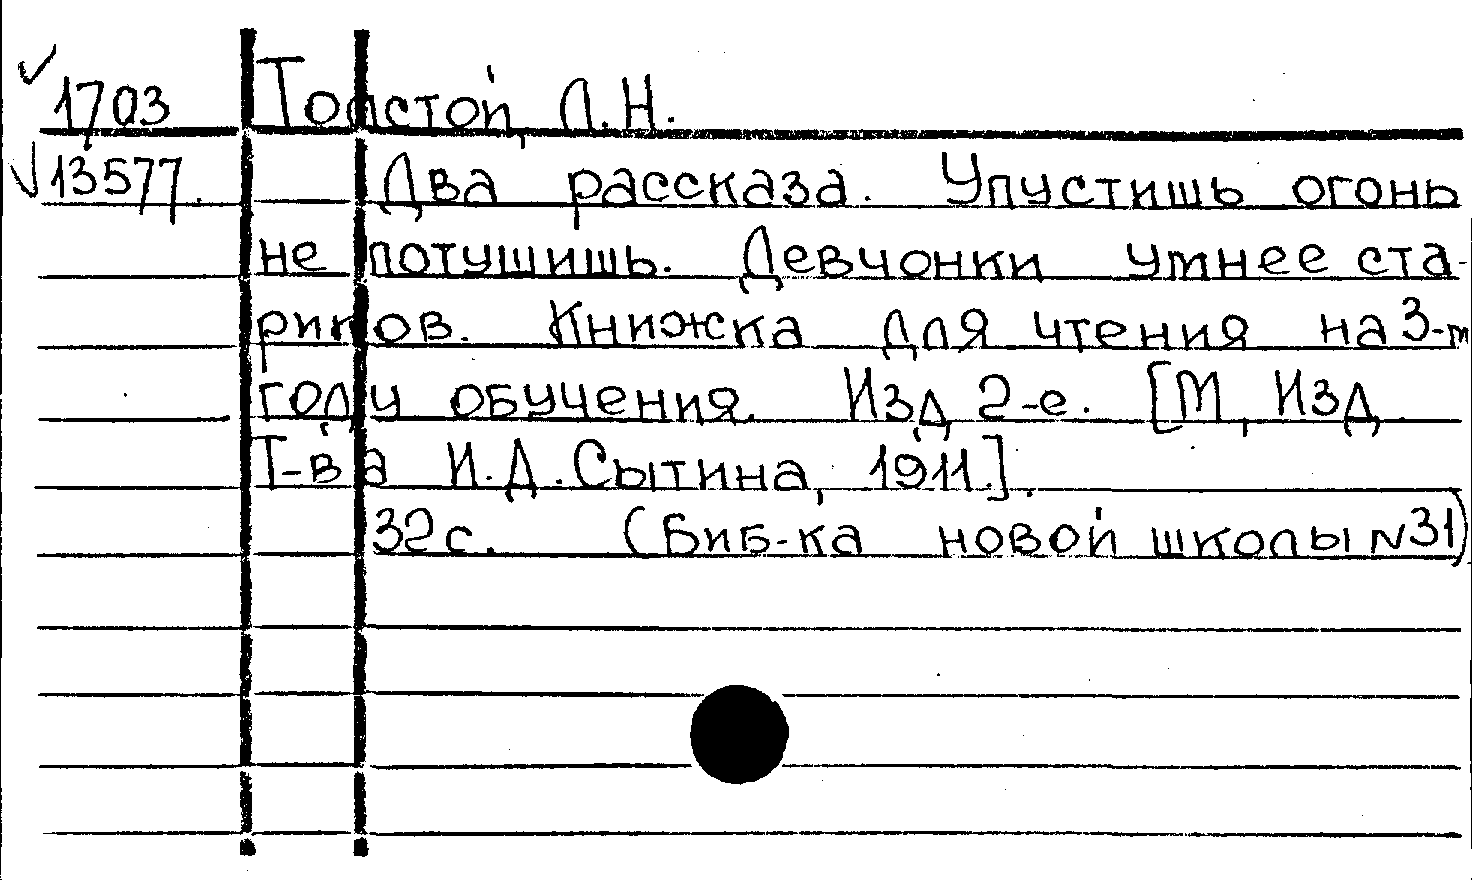 ✓ 1703 Толстой, Л.Н.
✓ 13577. Два рассказа. Упустишь огонь
не потушишь. Девчонки умнее ста-
риков. Книжка для чтения на 3-м
году обучения. Изд 2-е. [М, Изд
Т-ва И.Д.Сытина, 1911.].
32с. (Биб-ка новой школы №31)